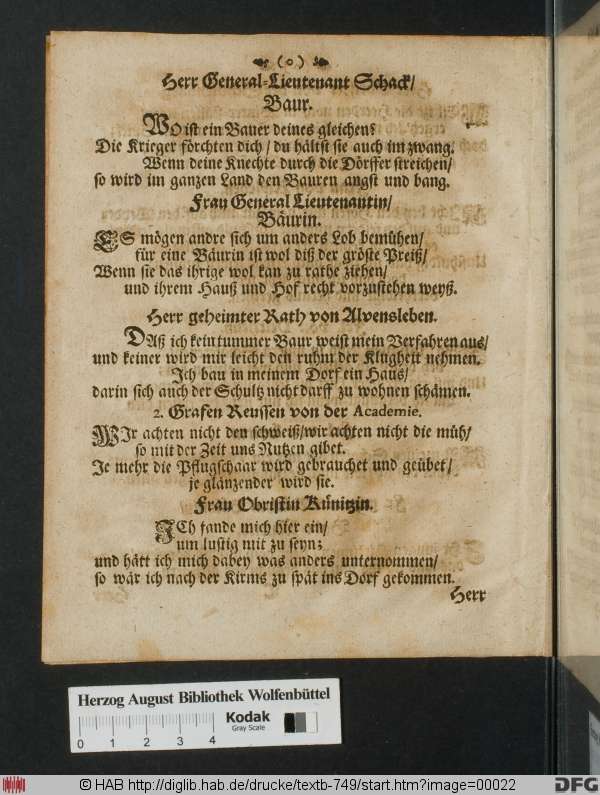 (o)
Herr General-Lieutenant Schack/
Baur.
WO ist ein Bauer deines gleichen?
Die Krieger förchten dich/ du hältst sie auch im zwang.
Wenn deine Knechte durch die Dörffer streichen/
so wird im ganzen Land den Bauren angst und bang.
Frau General Lieutenantin/
Bäurin.
ES mögen andre sich um anders Lob bemühen/
für eine Bäurin ist wol diß der gröste Preiß/
Wenn sie das ihrige wol kan zu rathe ziehen/
und ihrem Hauß und Hof recht vorzustehen weyß.
Herr geheimter Rath von Alvensleben.
DAß ich kein tummer Baur weist mein Verfahren aus/
und keiner wird mir leicht den ruhm der Klugheit nehmen.
Ich bau in meinem Dorf ein Haus/
darin sich auch der Schultz nicht darff zu wohnen schämen.
2. Grafen Reussen von der Academie.
WIr achten nicht den schweiß/wir achten nicht die müh/
so mit der Zeit uns Nutzen gibet.
Je mehr die Pflugschaar wird gebrauchet und geübet/
je glänzender wird sie.
Frau Obristin Künitzin.
ICh fande mich hier ein/
um lustig mit zu seyn;
und hätt ich mich dabey was anders unternommen/
so wär ich nach der Kirms zu spät ins Dorf gekommen.
Herr
Herzog August Bibliothek Wolfenbüttel
Kodak
Gray Scale
0 1 2 3 4
© HAB http://diglib.hab.de/drucke/textb-749/start.htm?image=00022
DFG